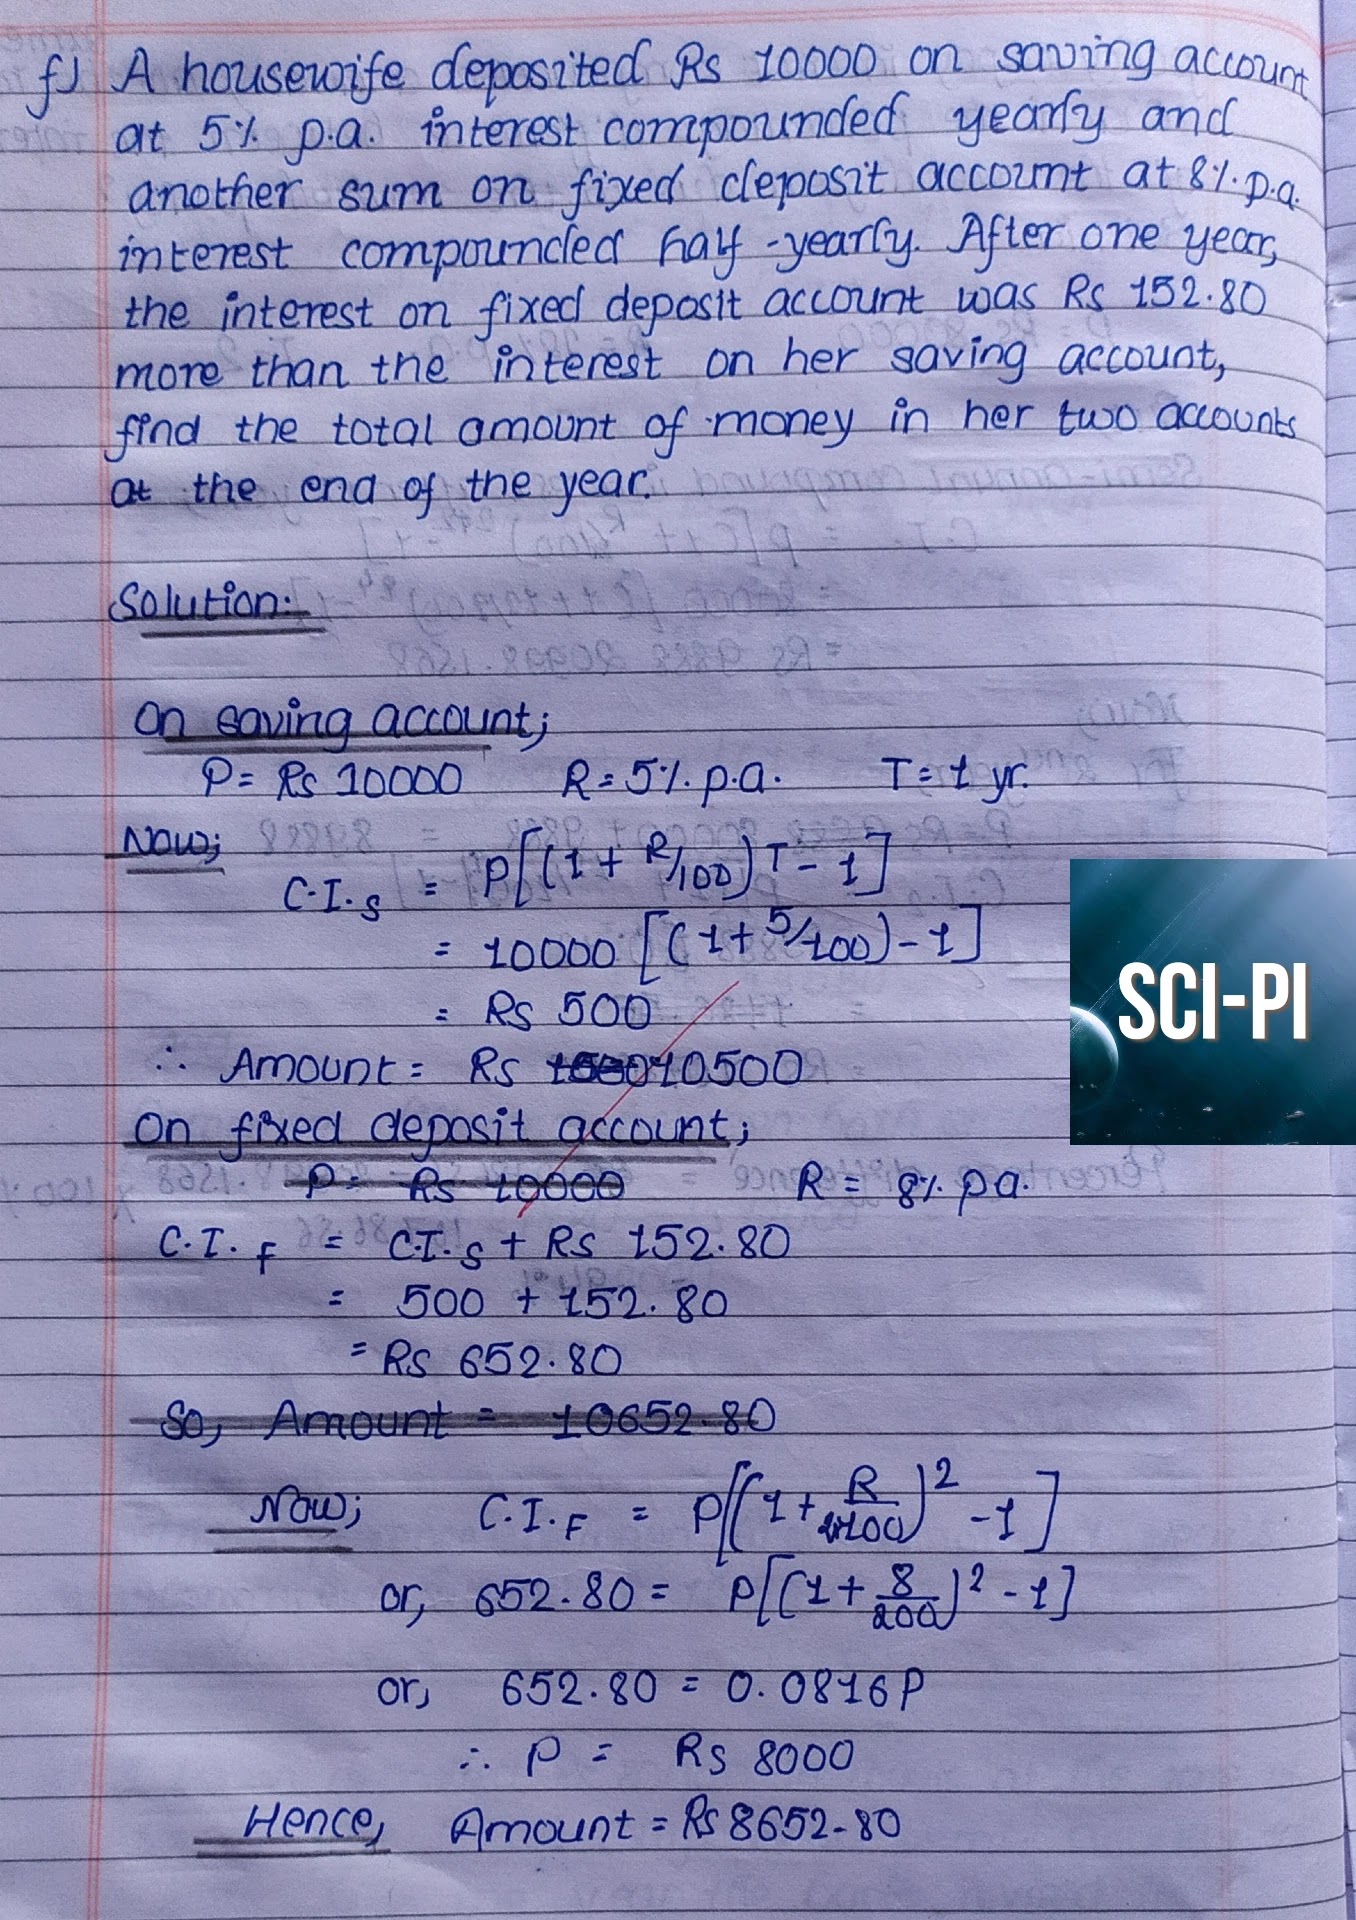 f) A housewife deposited Rs 10000 on saving account
at 5% p.a. interest compounded yearly and
another sum on fixed deposit account at 8% p.a.
interest compounded half-yearly. After one year,
the interest on fixed deposit account was Rs 152.80
more than the interest on her saving account,
find the total amount of money in her two accounts
at the end of the year.
Solution:
On saving account;
P = Rs 10000 R = 5% p.a. T = 1 yr.
Now;
C.I.s = P[(1 + R/100)T - 1]
= 10000 [(1 + 5/100) - 1]
= Rs 500
∴ Amount = Rs 10500
SCI-PI
On fixed deposit account;
P = Rs 10000 R = 8% p.a.
C.I.F = C.I.s + Rs 152.80
= 500 + 152.80
= Rs 652.80
So, Amount = 10652.80
Now; C.I.F = P[(1 + R/2×100)² - 1]
or, 652.80 = P[(1 + 8/200)² - 1]
or, 652.80 = 0.0816P
∴ P = Rs 8000
Hence, Amount = Rs 8652.80